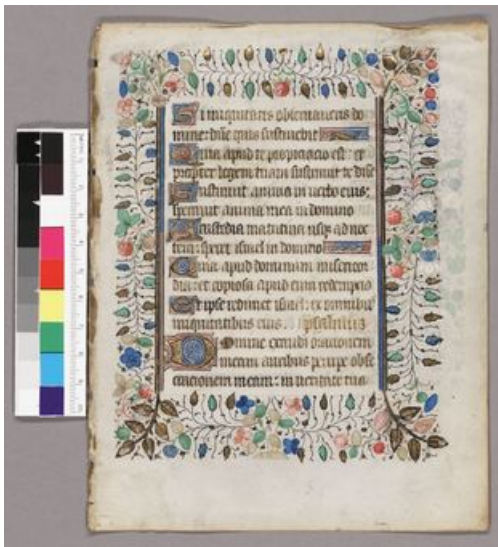 Si iniquitatis observaveris do
mine: dñe quis sustinebit
Quia apud te propiciacio est: et
propter legem tuam sustinui te dñe
Sustinuit anima in verbo eius:
speravit anima mea in domino
A custodia matutina usqz ad noc
tem: speret israel in domino
Quia apud dominum misericor
dia: et copiosa apud eum redempcio
Et ipse redimet israel: ex omnibus
iniquitatibus eius. psalmus
Domine exaudi orationem
meam auribus percipe obse
cracionem meam: in veritate tua